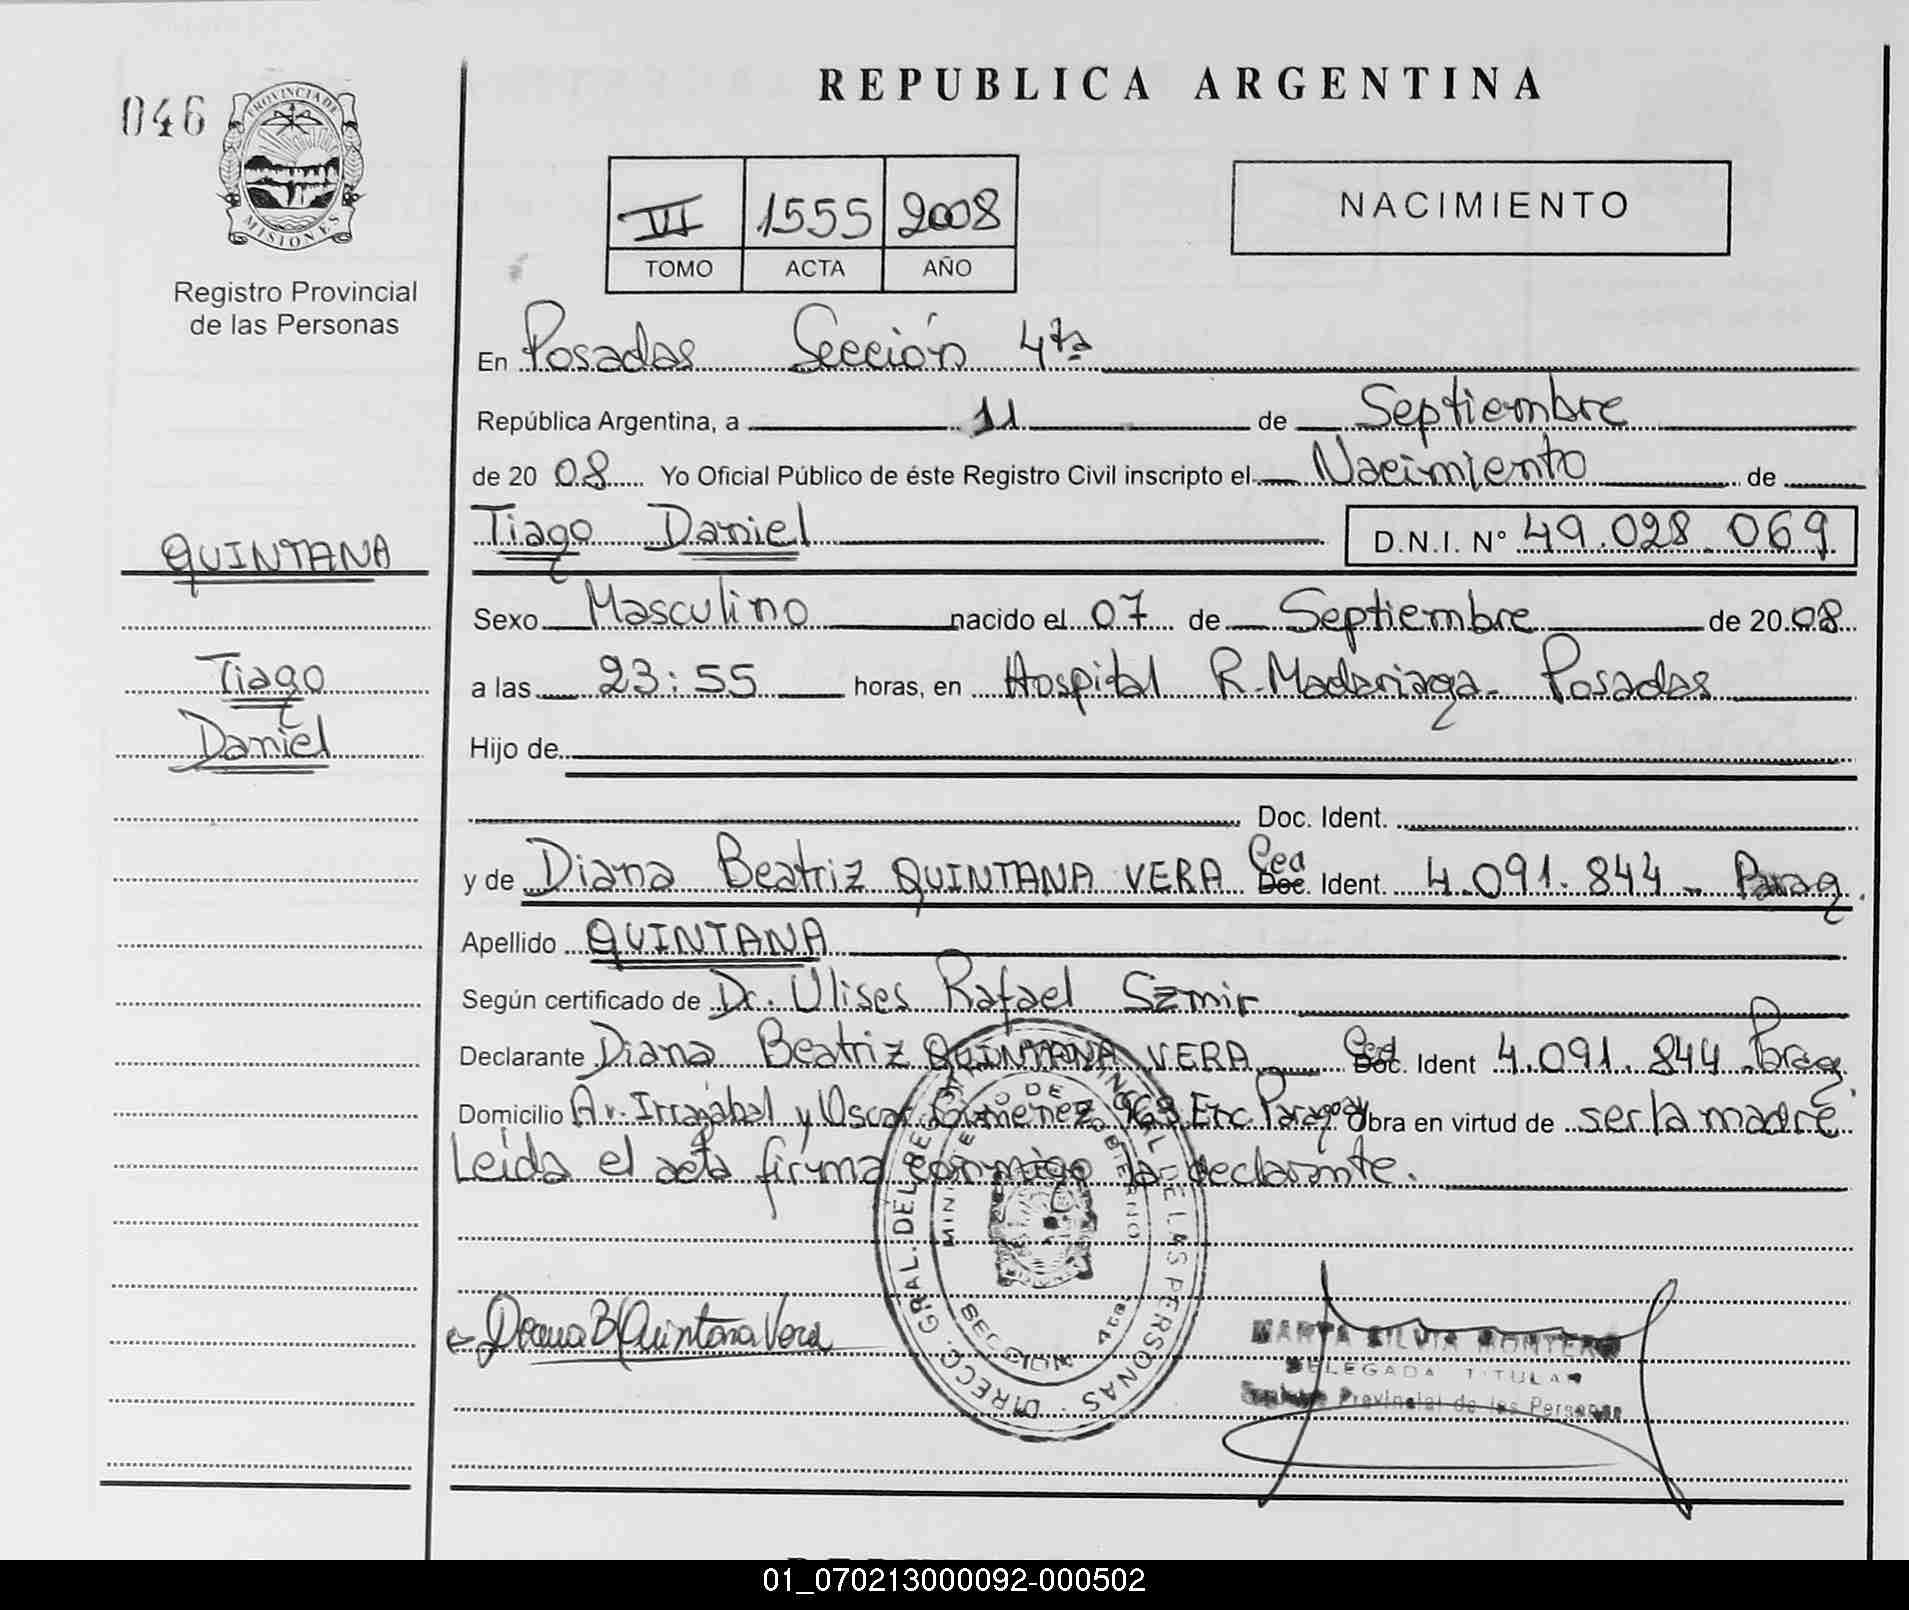 046
PROVINCIA DE
MISIONES
Registro Provincial
de las Personas
QUINTANA
Tiago
Daniel
REPUBLICA ARGENTINA
VI 1555 2008
TOMO ACTA AÑO
NACIMIENTO
En Posadas Sección 4ta
República Argentina, a 11 de Septiembre
de 20 08 Yo Oficial Público de éste Registro Civil inscripto el Nacimiento de
Tiago Daniel D.N.I. N° 49.028.069
Sexo Masculino nacido el 07 de Septiembre de 20 08
a las 23:55 horas, en Hospital R. Madariaga - Posadas
Hijo de
Doc. Ident.
y de Diana Beatriz QUINTANA VERA Ced Doc. Ident. 4.091.844 - Parag.
Apellido QUINTANA
Según certificado de Dr. Ulises Rafael Szmir
Declarante Diana Beatriz QUINTANA VERA Ced Doc. Ident 4.091.844 Parag.
Domicilio Av. Irrazábal y Oscar Gimenez 969 Enc. Paraguay Obra en virtud de ser la madre
Leída el acta firma conmigo la declarante.
DIRECC. GRAL. DEL REG. PROVINCIAL DE LAS PERSONAS
MINISTERIO DE GOBIERNO
SECCION 4ta
Diana B Quintana Vera
MARTA SILVIA MONTERO
DELEGADA TITULAR
Registro Provincial de las Personas
01_070213000092-000502